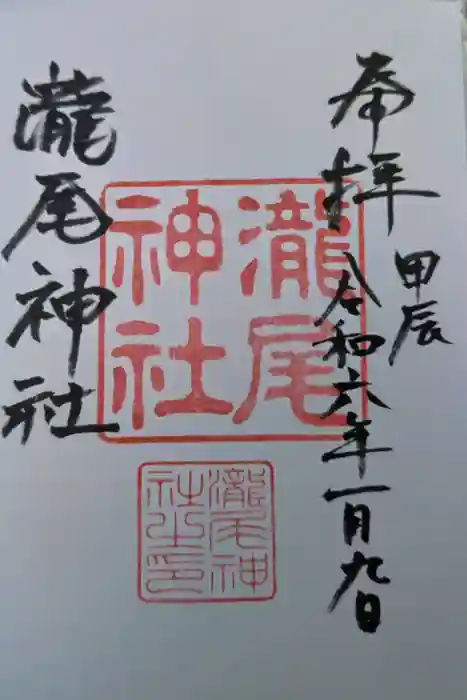 奉拝
甲辰
令和六年一月九日
瀧尾
神社
瀧尾神
社之印
瀧尾神社